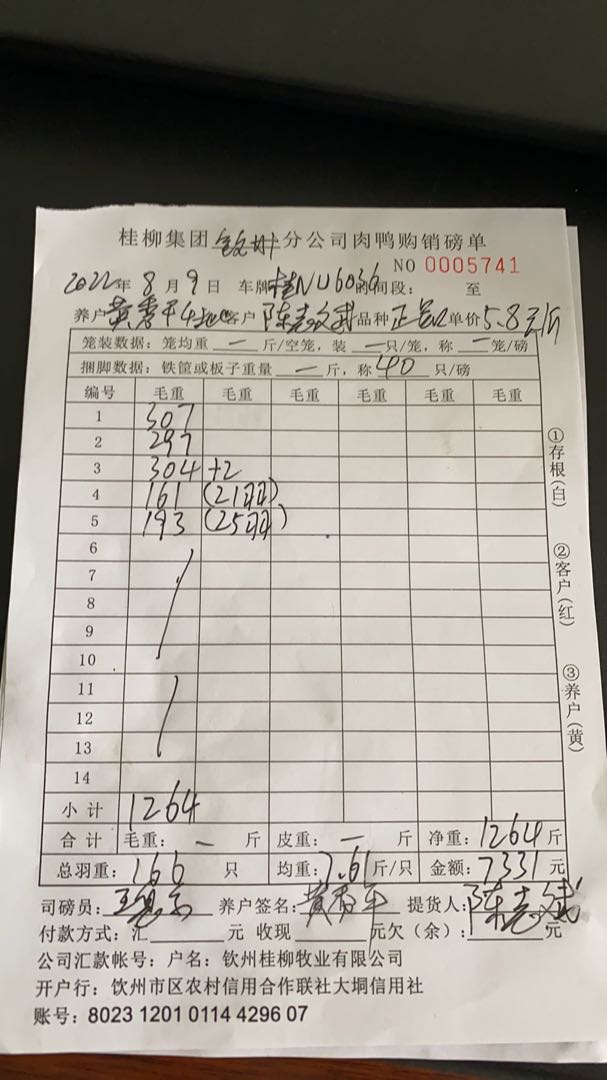 桂柳集团钦州分公司肉鸭购销磅单
NO 0005741
2022年8月9日 车牌桂NU6036时间段: 至
养户 客户 陈志斌 品种 正品 单价5.8元/斤
笼装数据: 笼均重 — 斤/空笼, 装 — 只/笼, 称 — 笼/磅
捆脚数据: 铁筐或板子重量 — 斤, 称 40 只/磅
编号 毛重 毛重 毛重 毛重 毛重 毛重
1 307
2 297
3 304 +2
4 161 (21羽)
5 193 (25羽)
6
7
8
9
10
11
12
13
14
小计 1264
合计 毛重: — 斤 皮重: — 斤 净重: 1264 斤
总羽重: 166 只 均重: 7.61 斤/只 金额: 7331 元
司磅员: 养户签名: 黄秀平 提货人: 陈志斌
付款方式: 汇 元 收现 元欠(余): 元
公司汇款帐号: 户名: 钦州桂柳牧业有限公司
开户行: 钦州市区农村信用合作联社大垌信用社
账号: 8023 1201 0114 4296 07
①存根(白)
②客户(红)
③养户(黄)